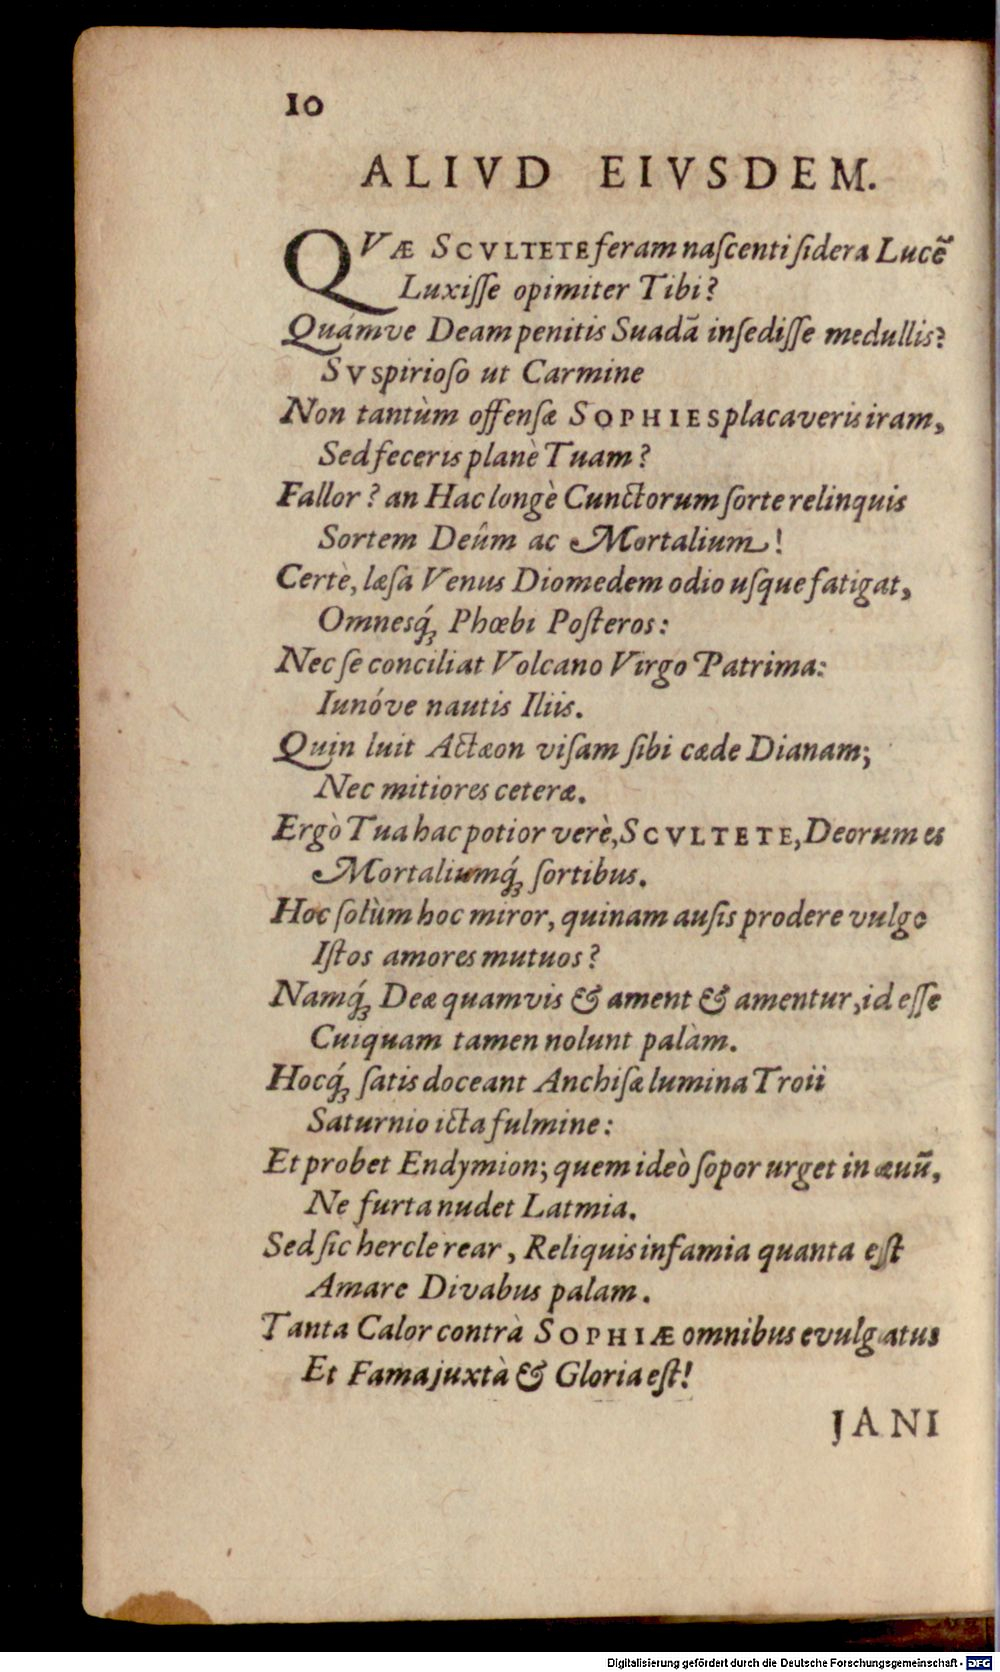 10
ALIVD EIVSDEM.
QVÆ SCVLTETE feram naſcenti ſidera Lucẽ
Luxiſſe opimiter Tibi?
Quámve Deam penitis Suadā inſediſſe medullis?
SVſpirioſo ut Carmine
Non tantùm offenſæ SOPHIES placaveris iram,
Sed feceris planè Tuam?
Fallor? an Hac longè Cunctorum ſorte relinquis
Sortem Deûm ac Mortalium!
Certè, læſa Venus Diomedem odio uſque fatigat,
Omnesq́; Phœbi Poſteros:
Nec ſe conciliat Volcano Virgo Patrima:
Iunóve nautis Iliis.
Quin luit Actæon viſam ſibi cæde Dianam;
Nec mitiores ceteræ.
Ergò Tua hac potior verè, SCVLTETE, Deorum es
Mortaliumq́; ſortibus.
Hoc ſolùm hoc miror, quinam auſis prodere vulgo
Iſtos amores mutuos?
Namq́; Deæ quamvis & ament & amentur, id eſſe
Cuiquam tamen nolunt palàm.
Hocq́; ſatis doceant Anchiſæ lumina Troii
Saturnio icta fulmine:
Et probet Endymion; quem ideò ſopor urget in ævū,
Ne furta nudet Latmia.
Sed ſic hercle rear, Reliquis infamia quanta eſt
Amare Divabus palam.
Tanta Calor contrà SOPHIÆ omnibus evulgatus
Et Fama juxtà & Gloria eſt!
JANI
Digitalisierung gefördert durch die Deutsche Forschungsgemeinschaft - DFG